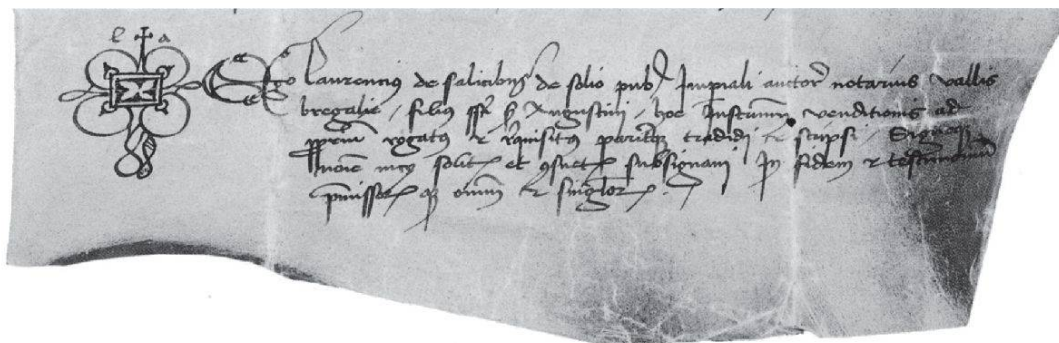 l a
Ego Laurencius de salicibus de solio pub Imperiali auctor notarius vallis
bregalie, filius ser Augustini, hoc Instrum venditionis ad
rogatus et requisitus tradidi et scripsi Signoq
meis solit et consuet subsignavi In fidem et testimonium
premissor omnium et singulor